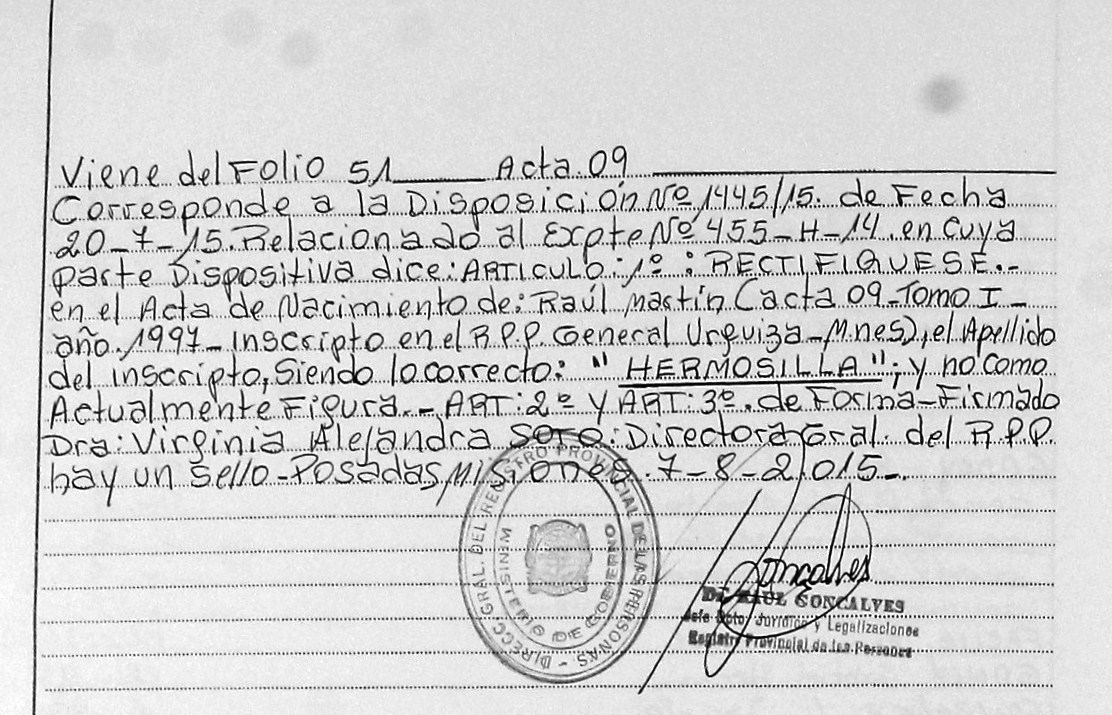 Viene del Folio 51 Acta. 09
Corresponde a la Disposición Nº 1445/15. de Fecha
20-7-15. Relacionado al Expte Nº 455-H-14. en Cuya
parte Dispositiva dice: ARTICULO: 1º: RECTIFIQUESE.-
en el Acta de Nacimiento de: Raúl Martín, (acta 09-Tomo I-
año. 1997- Inscripto en el R.P.P. General Urquiza-M.nes), el Apellido
del inscripto, Siendo lo correcto: "HERMOSILLA"; y no como
Actualmente Figura.- ART: 2º y ART: 3º. de Forma-Firmado
Dra: Virginia Alejandra SOTO: Directora Gral. del R.P.P.
hay un sello-Posadas, Misiones. 7-8-2.015-.
DIRECC. GRAL. DEL REGISTRO PROVINCIAL DE LAS PERSONAS -
MINISTERIO DE GOBIERNO
Goncalves
RAUL GONCALVES
Jefe Dpto. Jurídico y Legalizaciones
Registro Provincial de las Personas